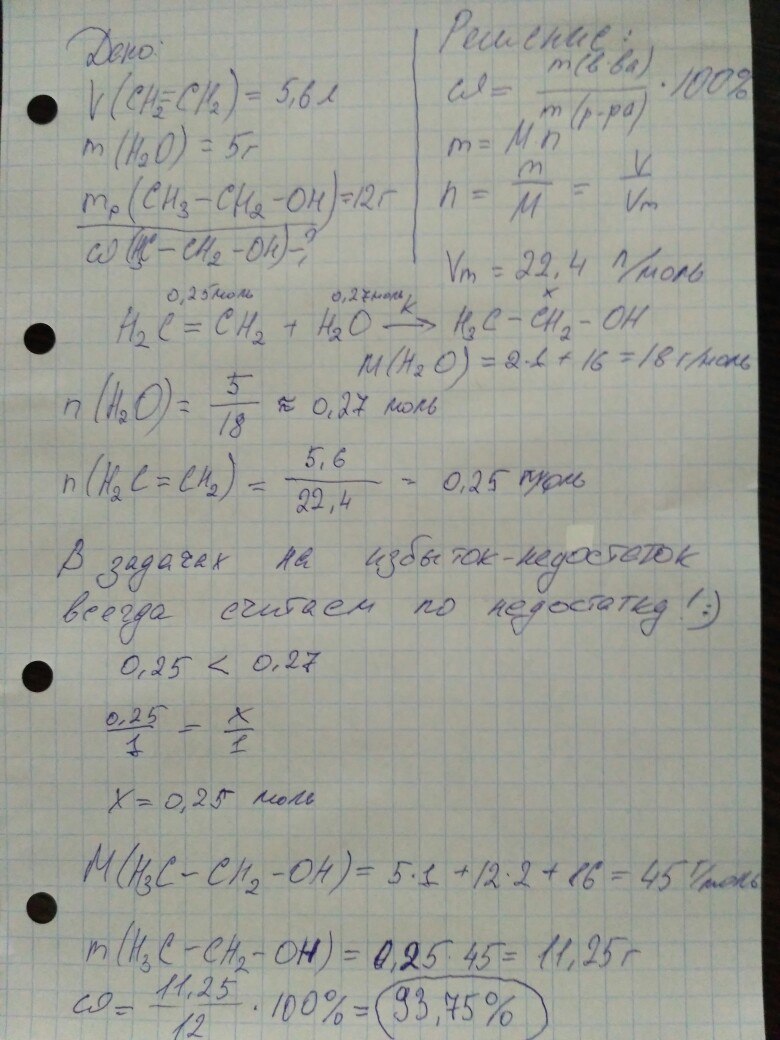 Дано:
V(CH₂=CH₂) = 5,6 л
m(H₂O) = 5г
mр(CH₃-CH₂-OH)=12г
ω(H₃C-CH₂-OH)-?
Решение:
ω = m(в-ва) / m(р-ра) · 100%
m = Mn
n = m/M = V/Vm
Vm = 22,4 л/моль
0,25моль 0,27моль x
H₂C = CH₂ + H₂O →K H₃C-CH₂-OH
M(H₂O) = 2·1 + 16 = 18 г/моль
n(H₂O) = 5/18 ≈ 0,27 моль
n(H₂C=CH₂) = 5,6/22,4 = 0,25 моль
В задачах на избыток-недостаток
всегда считаем по недостатку! :)
0,25 < 0,27
0,25/1 = x/1
x = 0,25 моль
M(H₃C-CH₂-OH) = 5·1 + 12·2 + 16 = 45 г/моль
m(H₃C-CH₂-OH) = 0,25·45 = 11,25г
ω = 11,25/12 · 100% = 93,75%